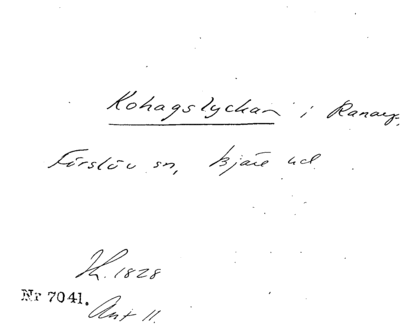 Kohagslyckan i Ranarp,
Förslöv sn, Bjäre hd
Sk. 1828
Nr 7041.
Ant 11.